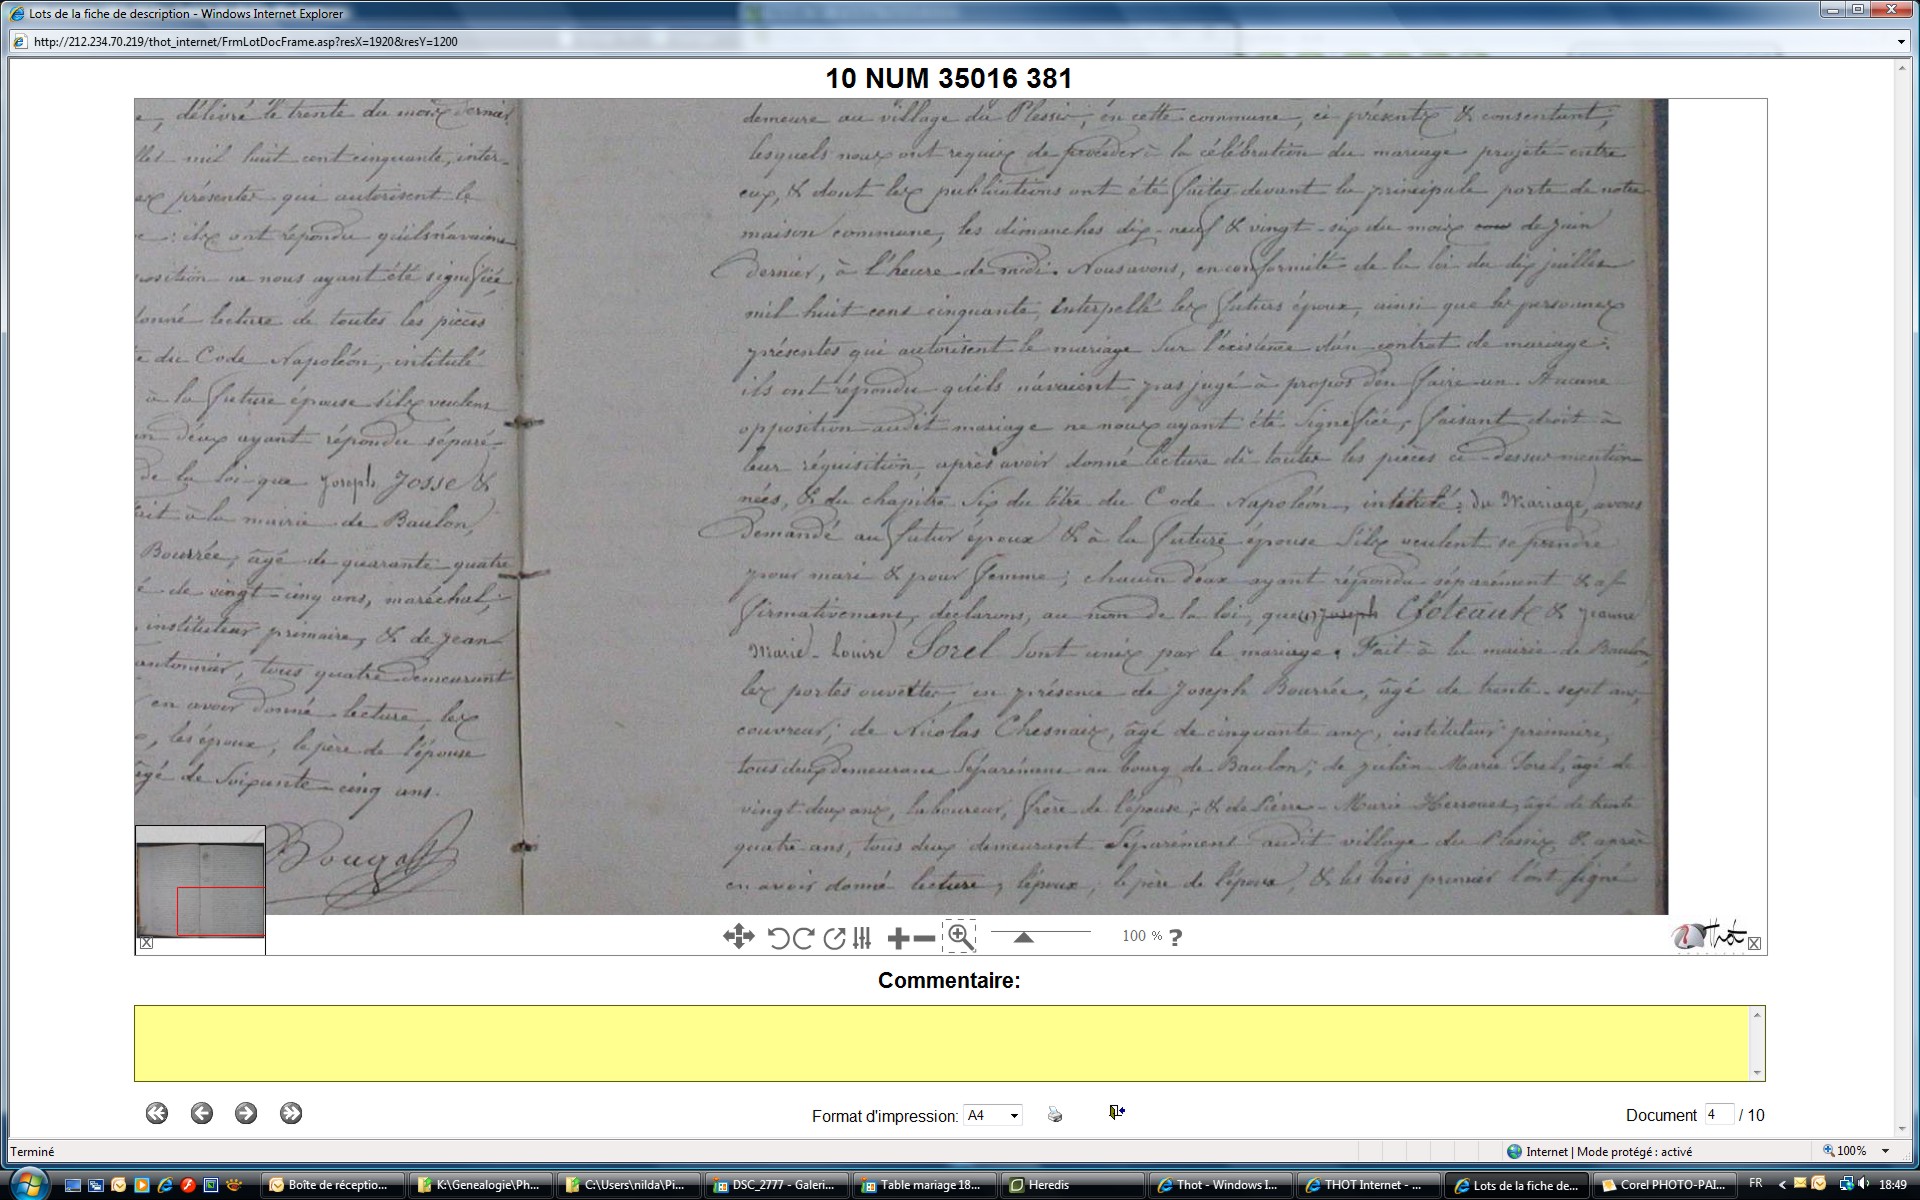 Lots de la fiche de description - Windows Internet Explorer
http://212.234.70.219/thot_internet/FrmLotDocFrame.asp?resX=1920&resY=1200
10 NUM 35016 381
délivré le trente du mois dernier
mil huit cent cinquante, inter-
présentes qui autorisent le
: ils ont répondu qu'ils n'avaient
position ne nous ayant été signifiée,
donné lecture de toutes les pièces
du Code Napoléon, intitulé
à la future épouse s'ils veulent
d'eux ayant répondu séparé-
de la loi que Joseph Josse &
fait à la mairie de Baulon,
Bourrée, âgé de quarante quatre
de vingt-cinq ans, maréchal;
, instituteur primaire, & de Jean
cantonnier, tous quatre demeurant
en avoir donné lecture, les
, les époux, le père de l'épouse
âgé de soixante-cinq ans.
Bougot
demeure au village du Plessix, en cette commune, ci présents & consentant,
lesquels nous ont requis de procéder à la célébration du mariage projeté entre
eux, & dont les publications ont été faites devant la principale porte de notre
maison commune, les dimanches dix-neuf & vingt-six du mois de juin
dernier, à l'heure de midi. Nous avons, en conformité de la loi du dix juillet
mil huit cent cinquante, interpellé les futurs époux, ainsi que les personnes
présentes qui autorisent le mariage sur l'existence d'un contrat de mariage :
ils ont répondu qu'ils n'avaient pas jugé à propos d'en faire un. Aucune
opposition audit mariage ne nous ayant été signifiée, faisant droit à
leur réquisition, après avoir donné lecture de toutes les pièces ci-dessus mention-
nées, & du chapitre six du titre du Code Napoléon, intitulé : du Mariage, avons
demandé au futur époux & à la future épouse s'ils veulent se prendre
pour mari & pour femme; chacun d'eux ayant répondu séparément & af
firmativement, déclarons, au nom de la loi, que Joseph Cloteaux & Jeanne
Marie-Louise Sorel sont unis par le mariage. Fait à la mairie de Baulon,
les portes ouvertes, en présence de Joseph Bourrée, âgé de trente-sept ans,
couvreur; de Nicolas Chesnais, âgé de cinquante ans, instituteur primaire,
tous deux demeurant séparément au bourg de Baulon; de Julien Marie Sorel, âgé de
vingt deux ans, laboureur, frère de l'épouse, & de Pierre-Marie âgé de trente
quatre ans, tous deux demeurant séparément audit village du Plessix & après
en avoir donné lecture, l'époux, le père de l'époux, & les trois premiers l'ont signé
100 % ?
Thot
Commentaire:
Format d'impression: A4
Document 4 / 10
Terminé
Internet | Mode protégé : activé
100%
Boîte de réceptio...
K:\Genealogie\Ph...
C:\Users\nilda\Pi...
DSC_2777 - Galeri...
Table mariage 18...
Heredis
Thot - Windows I...
THOT Internet - ...
Lots de la fiche de...
Corel PHOTO-PAI...
FR
18:49